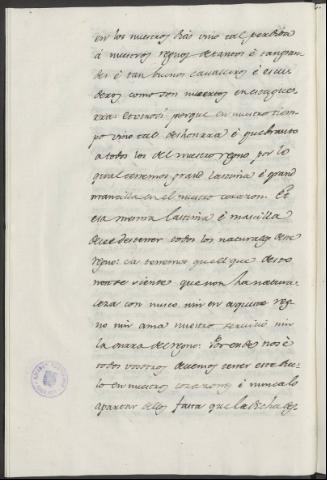 en los nuestros dias vino tal perdida
á nuestros regnos de tantos é tan gran
des é tan buenos cavalleros é escu
deros como son muertos en esta gue
rra: et otrosi porque en nuestro tiem
po vino tal deshonrra é quebranto
a todos los del nuestro regno por lo
qual tenemos grand lastima é grand
mancilla en el nuestro corazon. Et
esa mesma lastima é mancilla
deve de tener todos los naturales deste
regno: ca tenemos que el que desto
non se siente que non ha natura
leza con nusco nin en aqueste reg
no nin ama nuestro servicio nin
la onrra del regno: Por ende nos é
todos vosotros devemos tener este due
lo en nuestros corazones é nunca lo
apartar dellos fasta que la dicha des